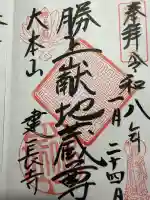 奉拝 令和八年
一月二十四日
勝上嶽地蔵尊
大本山
建長寺